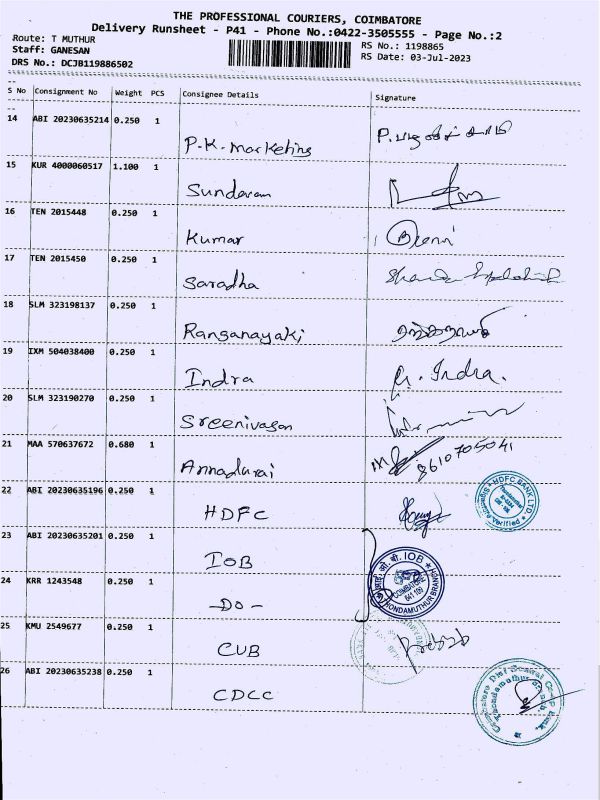 THE PROFESSIONAL COURIERS, COIMBATORE
Delivery Runsheet - P41 - Phone No.:0422-3505555 - Page No.:2
Route: T MUTHUR
RS No.: 1198865
Staff: GANESAN
RS Date: 03-Jul-2023
DRS No.: DCJB119886502
S No Consignment No Weight PCS Consignee Details Signature
14 ABI 20230635214 0.250 1
P.K. marketing
15 KUR 4000060517 1.100 1
Sundaram
16 TEN 2015448 0.250 1
Kumar
17 TEN 2015450 0.250 1
Saradha
18 SLM 323198137 0.250 1
Ranganayaki
19 IXM 504038400 0.250 1
Indra G. Indra.
20 SLM 323190270 0.250 1
Sreenivasan
21 MAA 570637672 0.680 1
Annadurai 8610705041
22 ABI 20230635196 0.250 1
HDFC
HDFC BANK LTD.
Signature Verified
23 ABI 20230635201 0.250 1
IOB
IOB
COIMBATORE
641 109
THONDAMUTHUR BRANCH
24 KRR 1243548 0.250 1
- DO -
25 KMU 2549677 0.250 1
CUB
26 ABI 20230635238 0.250 1
CDCC
Coimbatore Dist Central Coop Bank